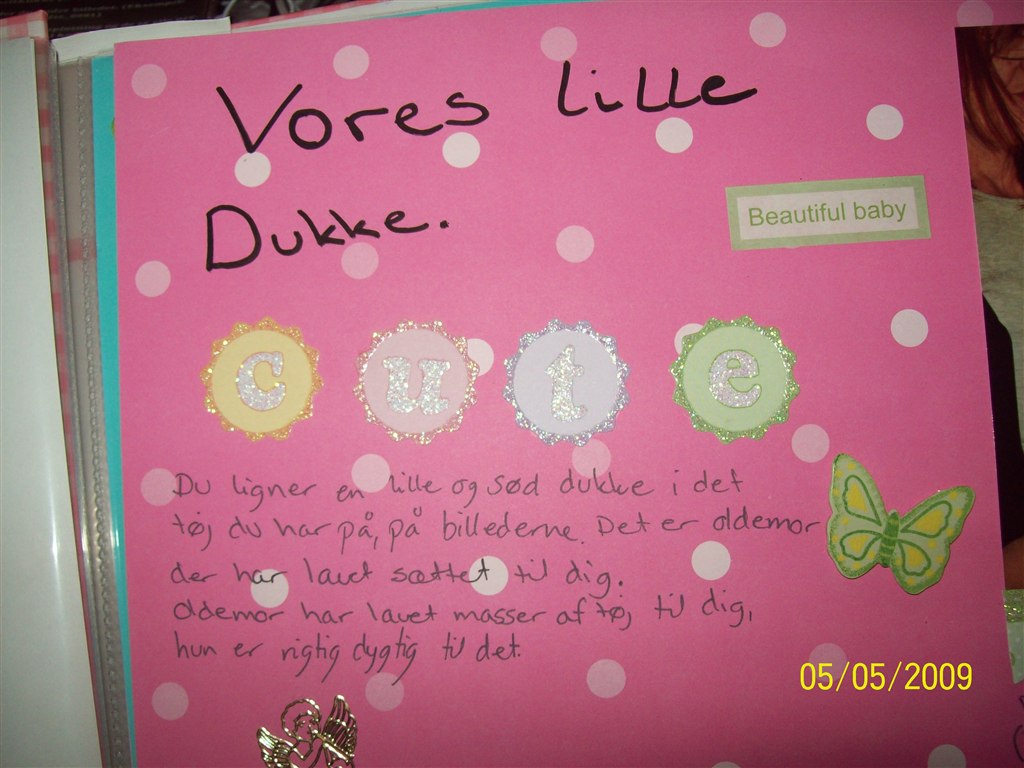 Vores lille
Dukke.
Beautiful baby
cute
Du ligner en lille og sød dukke i det
tøj du har på, på billederne. Det er oldemor
der har lavet sættet til dig.
oldemor har lavet masser af tøj til dig,
hun er rigtig dygtig til det.
05/05/2009